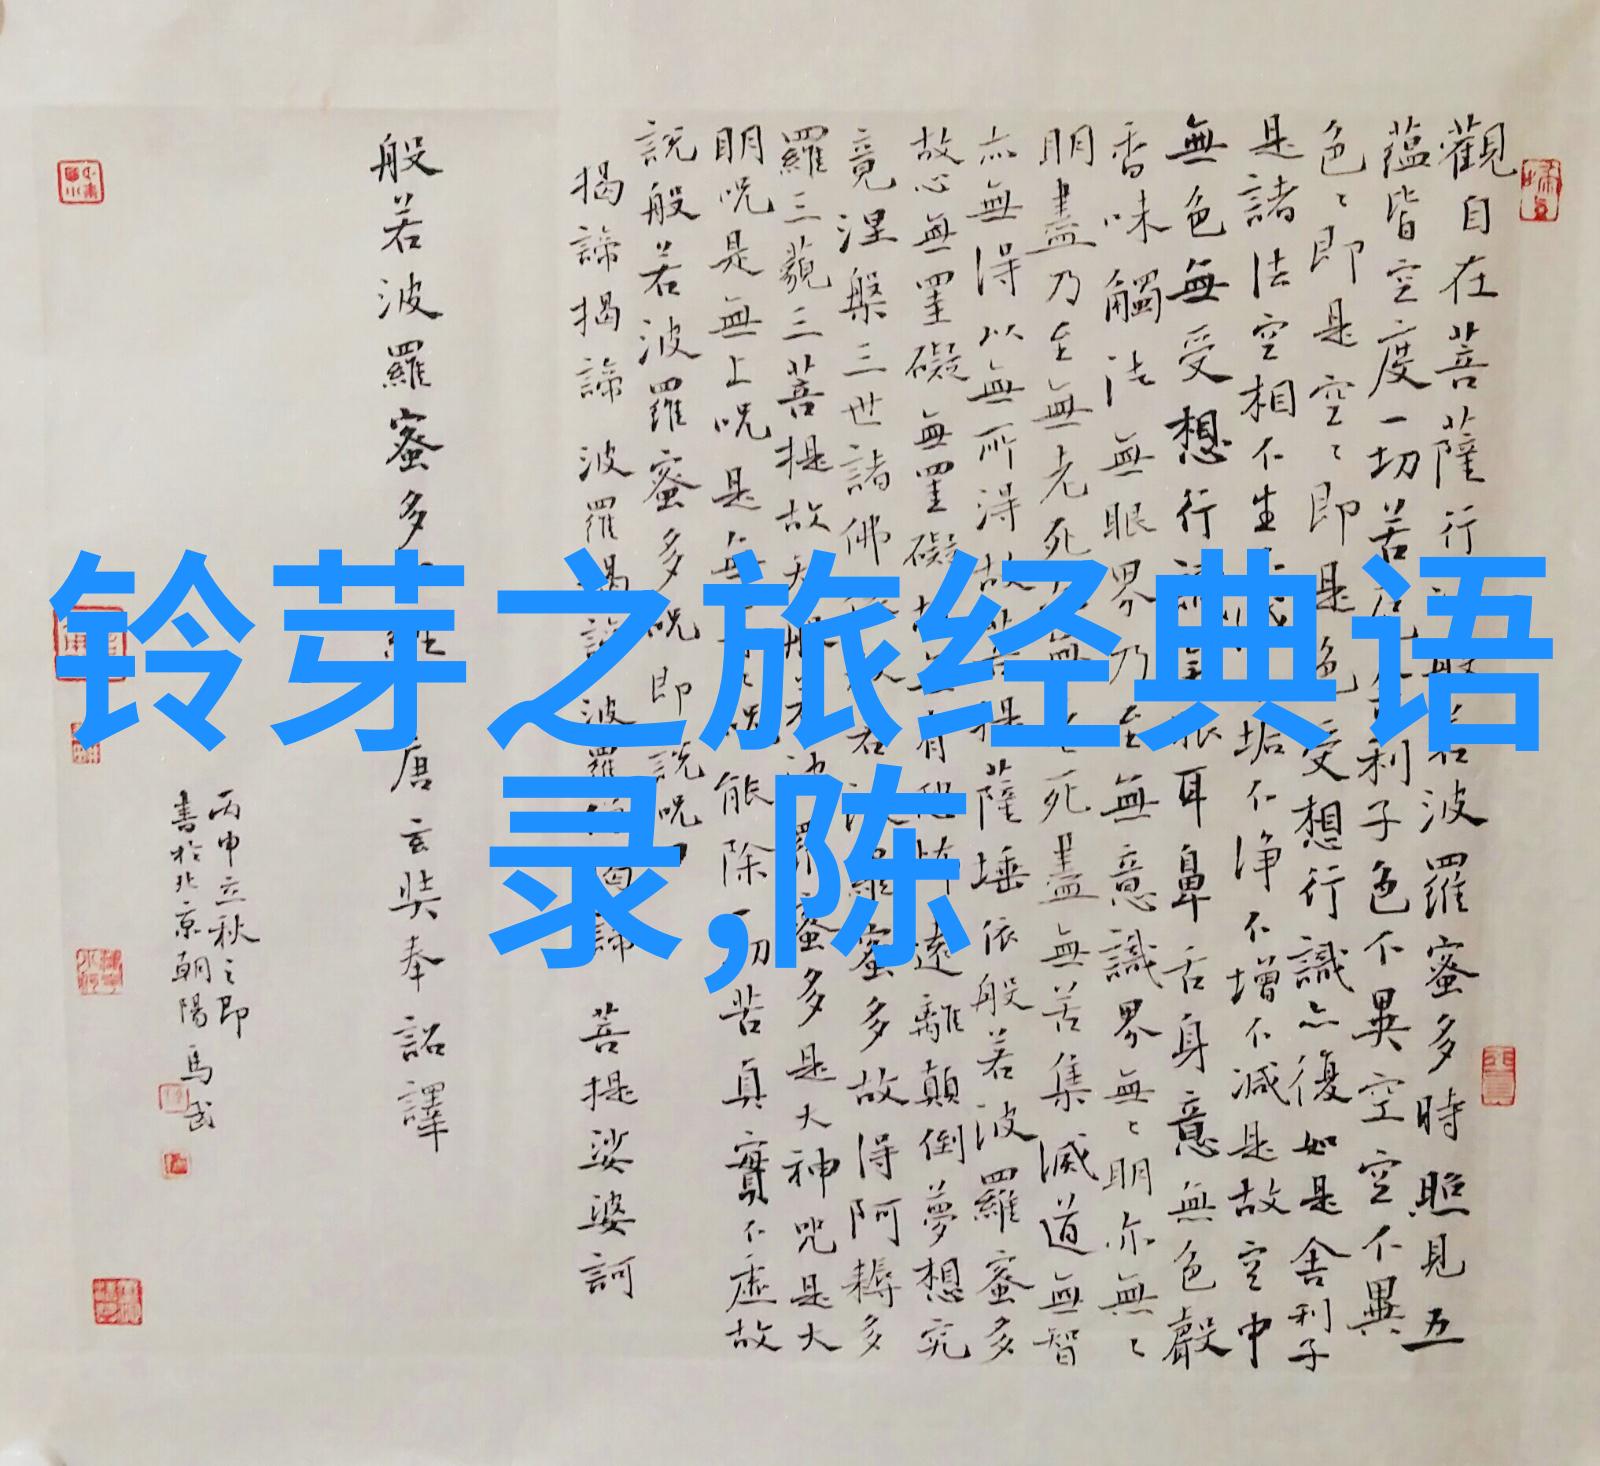 觀自在菩薩行般若波羅蜜多時照見五
蘊皆空度一切苦厄舍利子色不異空空不異
色〻即是空〻即是色受想行識亦復如是舍利子
是諸法空相不生不滅不垢不净不增不減是故空中
無色無受想行識無眼耳鼻舌身意無色聲
香味觸法無眼界乃至無意識界無〻明亦無〻
明盡乃至無老死亦無老死盡無苦集滅道無智
亦無得以無所得故菩提薩埵依般若波羅蜜多
故心無罣礙無罣礙故無有恐怖遠離顛倒夢想究
竟涅槃三世諸佛依般若波羅蜜多故得阿耨多
羅三藐三菩提故知般若波羅蜜多是大神咒是大
明咒是無上咒是無等〻咒能除一切苦真實不虛故
說般若波羅蜜多咒即說咒曰
揭諦揭諦 波羅揭諦 波羅僧揭諦 菩提娑婆訶
般若波羅蜜多心經 唐玄奘奉詔譯
丙申立秋之即
書於北京朝陽馬武
铃芽之旅经典语
录,陈